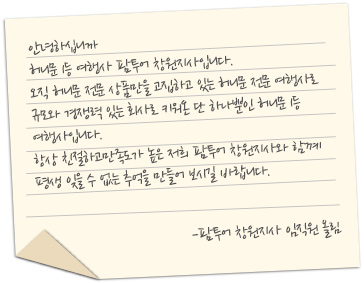 안녕하십니까
허니문 1등 여행사 팜투어 창원지사입니다.
오직 허니문 전문 상품만을 고집하고 있는 허니문 전문 여행사로
규모와 경쟁력 있는 회사로 키워온 단 하나뿐인 허니문 1등
여행사입니다.
항상 친절하고만족도가 높은 저희 팜투어 창원지사와 함께
평생 잊을 수 없는 추억을 만들어 보시길 바랍니다.
-팜투어 창원지사 임직원 올림